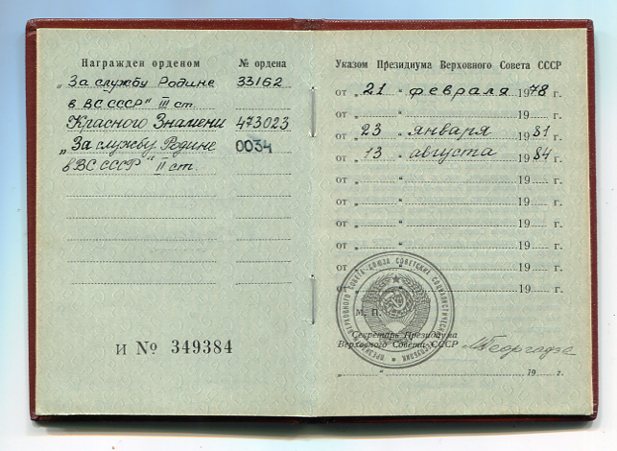 Награжден орденом № ордена
„За службу Родине 33162
в ВС СССР" III ст.
Красного Знамени 473023
„За службу Родине 0034
в ВС СССР" II ст.
И № 349384
Указом Президиума Верховного Совета СССР
от „ 21 “ февраля 1978 г.
от „ “ 19 г.
от „ 23 “ января 1981 г.
от „ 13 “ августа 1984 г.
от „ “ 19 г.
от „ “ 19 г.
от „ “ 19 г.
от „ “ 19 г.
от „ “ 19 г.
от „ “ 19 г.
М. П.
Секретарь Президиума
Верховного Совета СССР МГеоргадзе
„ “ 19 г.